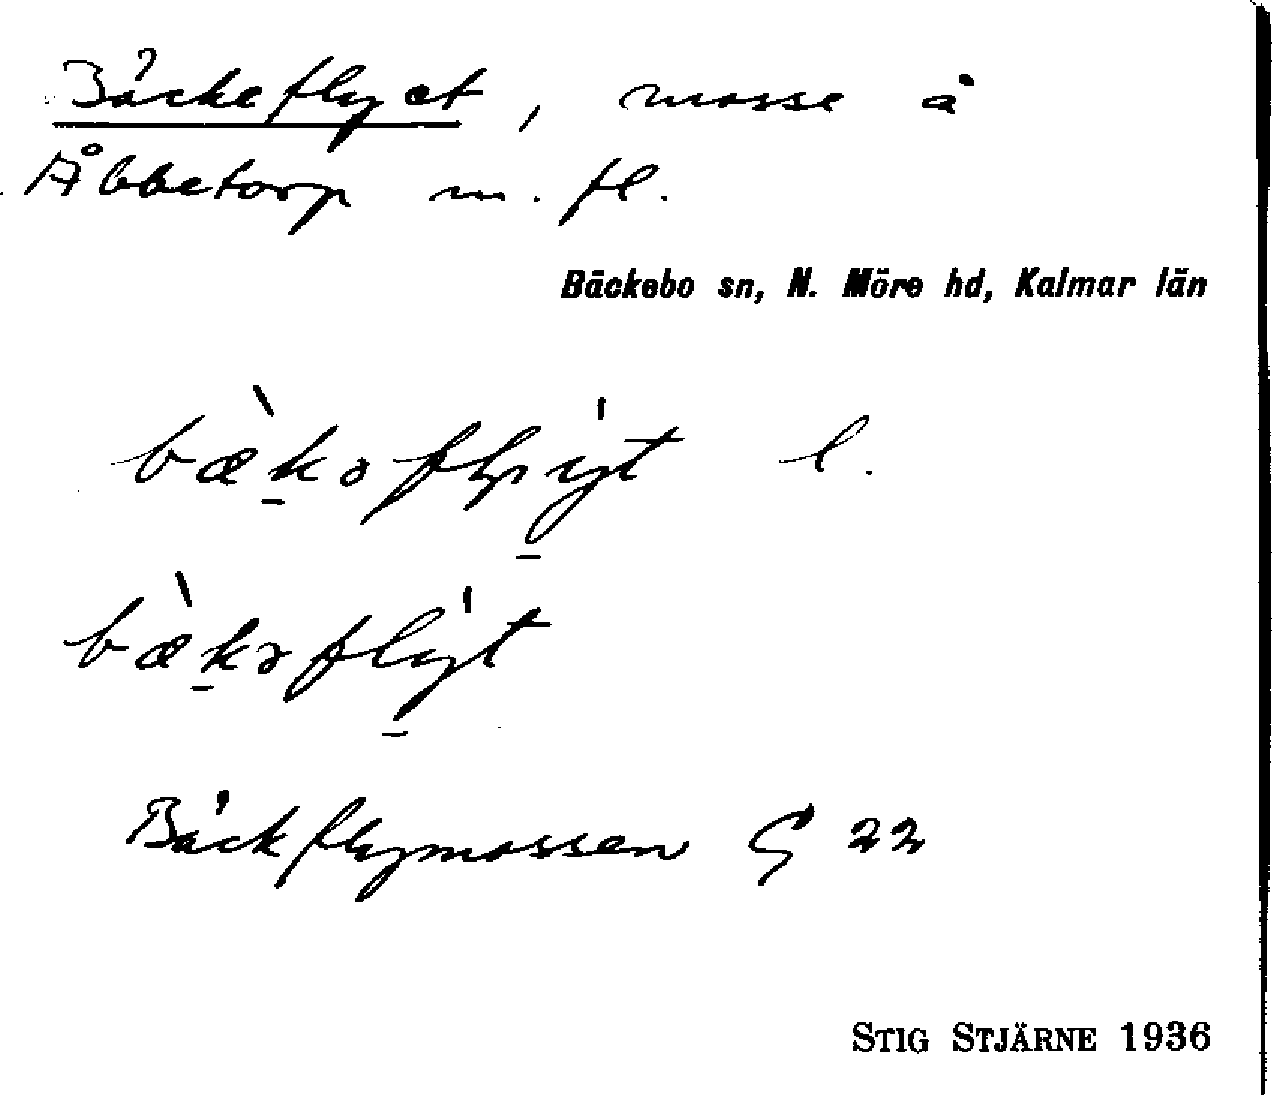 Bäckeflyet, mosse å
Åbbetorp m. fl.
Bäckebo sn, N. Möre hd, Kalmar län
l.
Bäckflymossen G 22
STIG STJÄRNE 1936